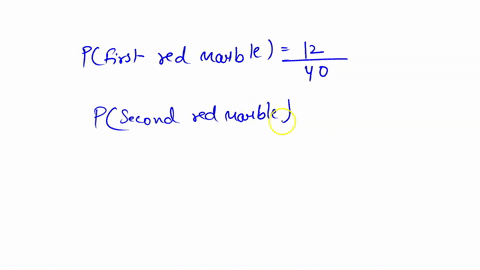 P(first red marble) = 12/40
P(Second red marble)